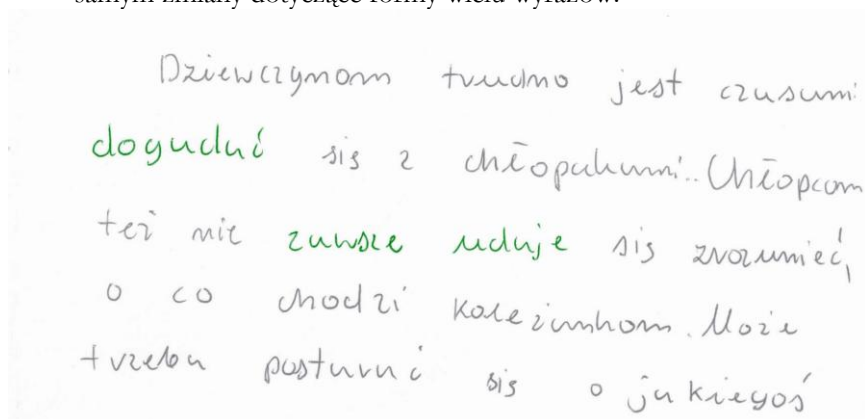 samym zmiany dotyczące formy wielu wyrazów.
Dziewczynom trudno jest czusumi
doguduć się z chłopukumi. Chłopcom
też nie zuwsze uduje się zrozumieć,
o co chodzi koleżunkom. Może
trzebu posturuć się o jukiegoś